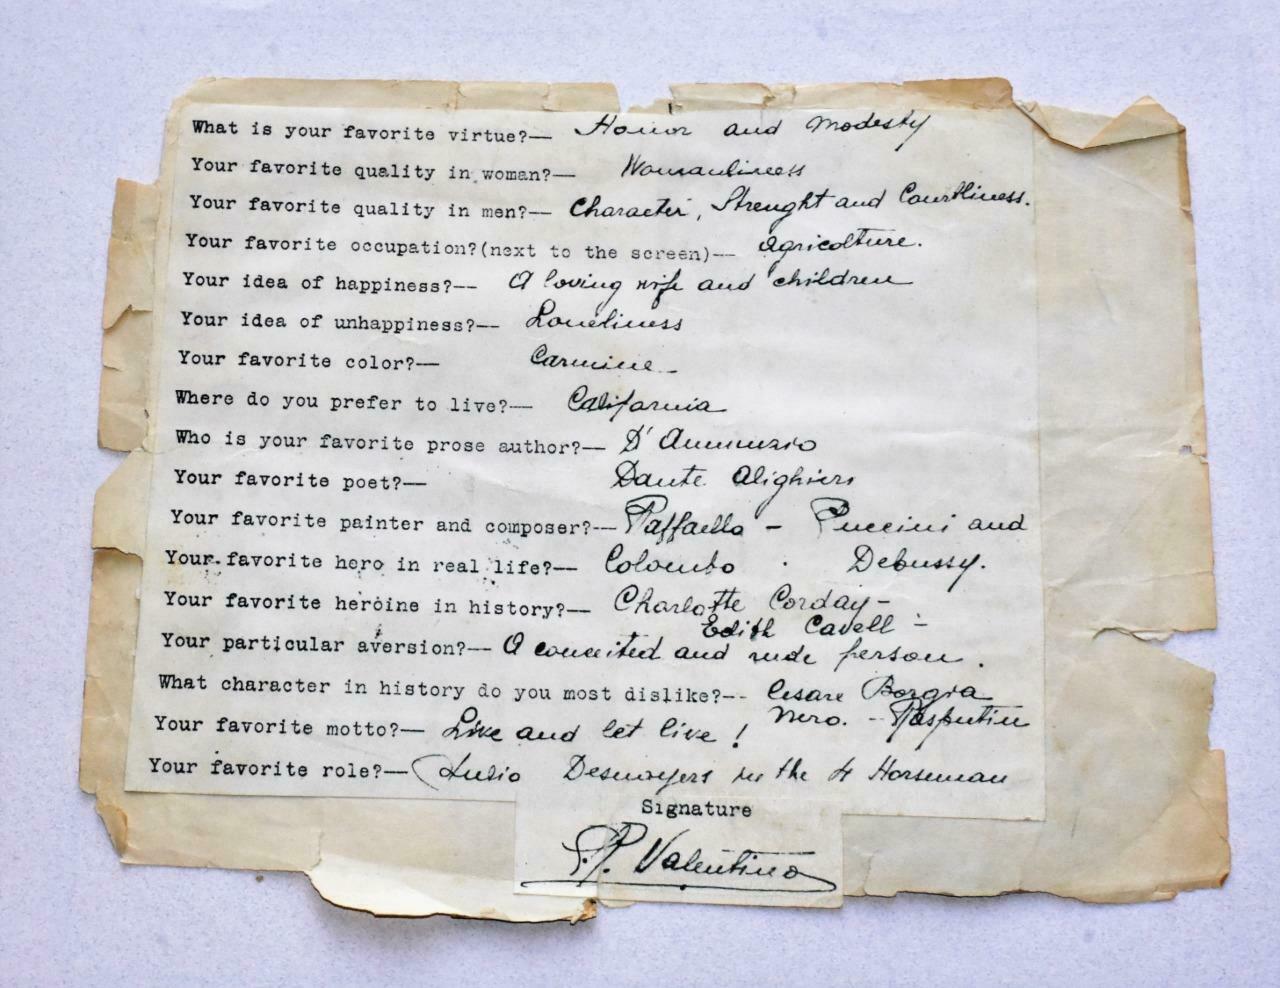 What is your favorite virtue?— Honor and Modesty
Your favorite quality in woman?— Womanliness
Your favorite quality in men?— Character, Strenght and Courtliness.
Your favorite occupation?(next to the screen)— Agricolture.
Your idea of happiness?— A loving wife and children
Your idea of unhappiness?— Loneliness
Your favorite color?— Carmine
Where do you prefer to live?— California
Who is your favorite prose author?— D'Annunzio
Your favorite poet?— Dante Alighieri
Your favorite painter and composer?— Raffaello - Puccini and
Your favorite hero in real life?— Colombo Debussy.
Your favorite heroine in history?— Charlotte Corday-
Edith Cavell -
Your particular aversion?— A conceited and rude person.
What character in history do you most dislike?-- Cesare Borgia
Nero. - Rasputin
Your favorite motto?— Live and let live!
Your favorite role?— Julio Desnoyers in the 4 Horseman
Signature
R. Valentino